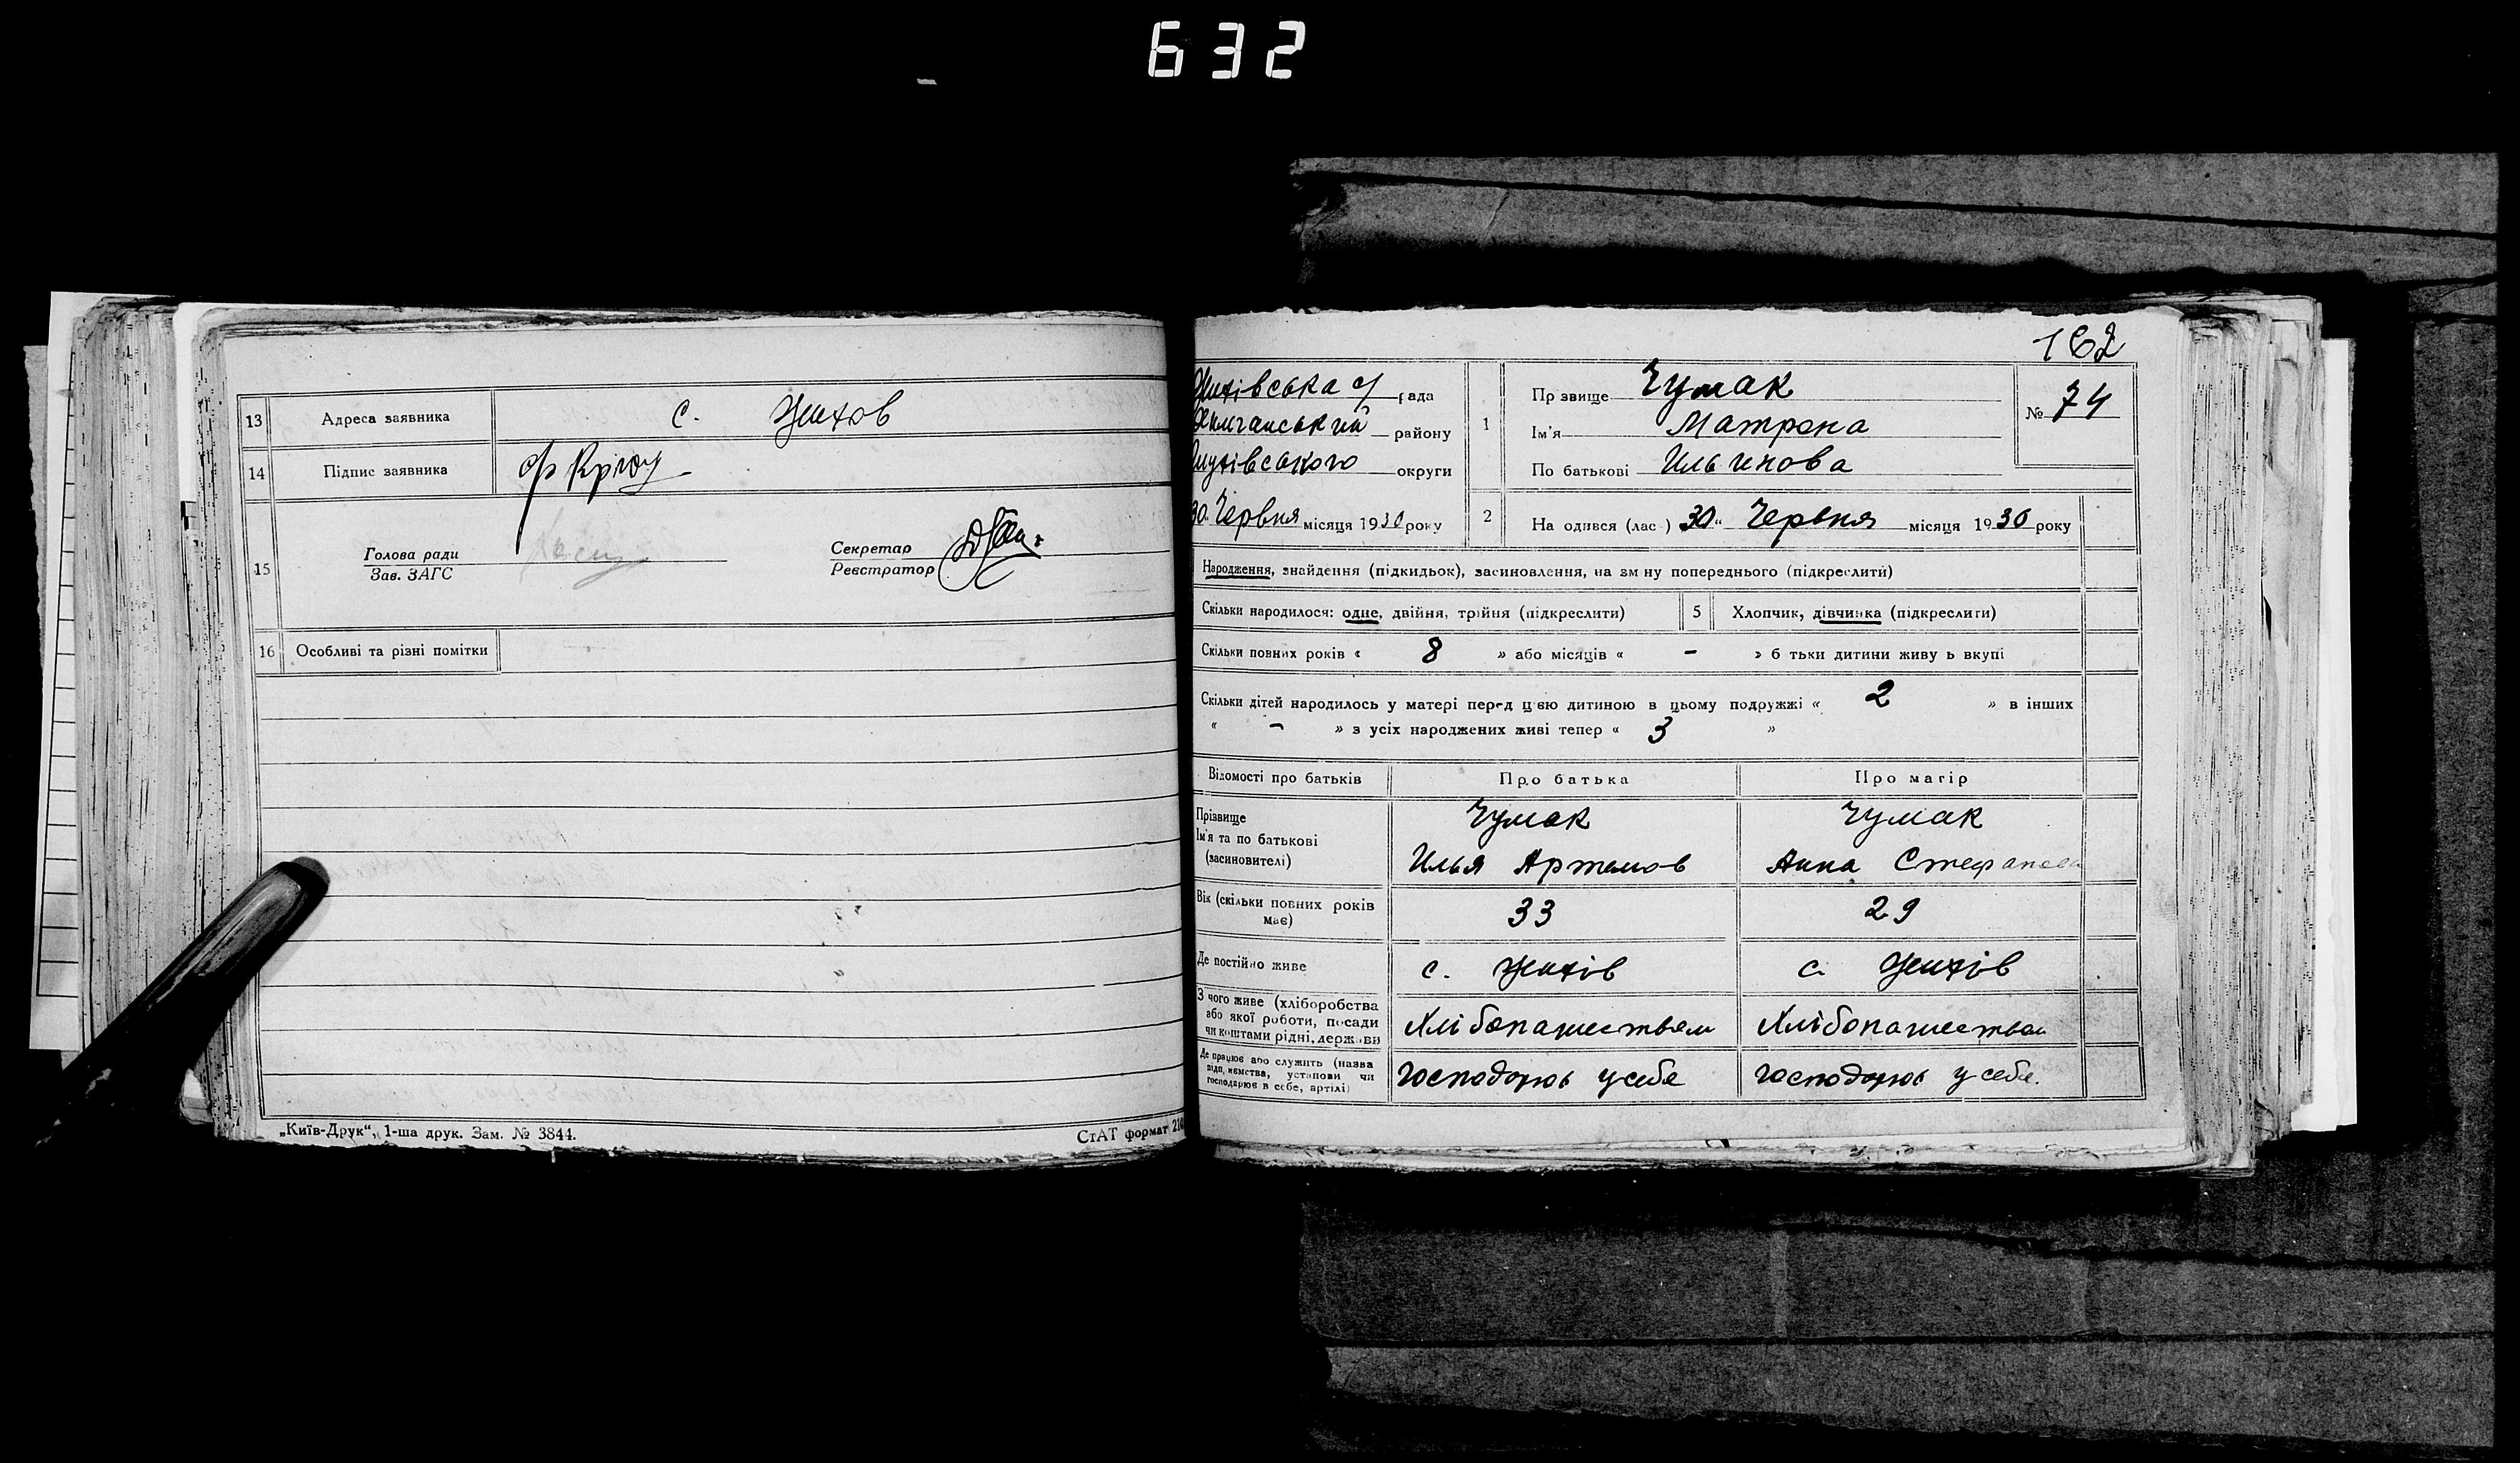 632
13 Адреса заявника с. Жихов
14 Підпис заявника
15 Голова ради
Зав. ЗАГС
Секретар
Реєстратор
16 Особливі та різні помітки
„Київ-Друк“, 1-ша друк. Зам. № 3844.
СтАТ формат 210
162
Жихівська с/ рада
району
округи
30 Червня місяця 1930 року
1 Пр звище Чумак
Ім'я Матрона
По батькові Ильинова
№ 74
2 На одився (лас ) 30 “ Червня місяця 1930 року
Народження, знайдення (підкидьок), засиновлення, на зм ну попереднього (підкреслити)
Скільки народилося: одне, двійня, трійня (підкреслити) 5 Хлопчик, дівчинка (підкреслити)
Скільки повних років « 8 » або місяців « - » б тьки дитини живу ь вкупі
Скільки дітей народилось у матері перед цією дитиною в цьому подружжі « 2 » в інших
« - » з усіх народжених живі тепер « 3 »
Відомості про батьків Про батька Про матір
Прізвище
Ім'я та по батькові
(засиновителі)
Чумак
Илья Артемов
Чумак
Анна Стефанова
Вік (скільки повних років
має)
33 29
Де постійно живе с. Жихів с. Жихів
З чого живе (хліборобства
або якої роботи, посади
чи коштами рідні, держави
Хлібопашеством Хлібопашеством
Де працює або служить (назва
підп, иємства, установи чи
господарює в себе, артілі)
господарює у себе господарює у себе.